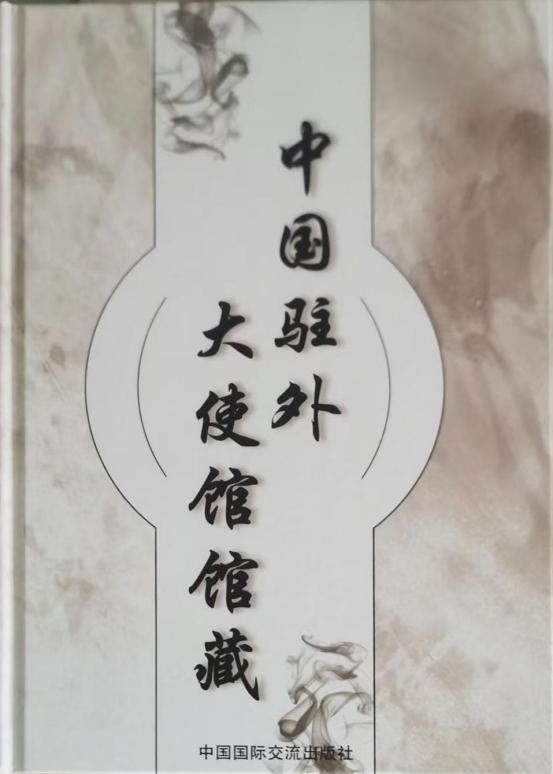 中国驻外
大使馆馆藏
中国国际交流出版社